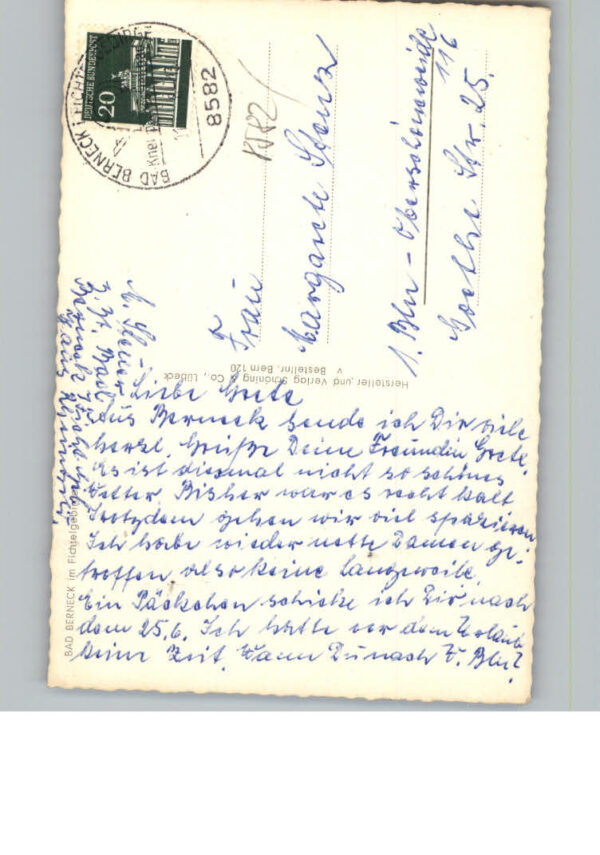 DEUTSCHE BUNDESPOST
20
BAD BERNECK
8582
8582
Frau
Margarete Stenz
1. Bln-Oberschöneweide
116
Goethe Str. 25.
Hersteller und Verlag Schöning & Co., Lübeck
v Bestellnr. Bern 120
BAD BERNECK im Fichtelgebirge
Z. Zt. Bad
Berneck
Haus
Liebe Grete
Aus Berneck sende ich Dir viele
herzl. Grüße Deine Freundin Grete.
Es ist diesmal nicht so schönes
Wetter. Bisher war es recht kalt
Trotzdem gehen wir viel spazieren
Ich habe wieder nette Damen ge-
troffen also keine Langeweile.
Ein Päckchen schicke ich Dir nach
dem 25.6. Ich hatte vor dem Urlaub
keine Zeit. Wann Du nach W. Bln?